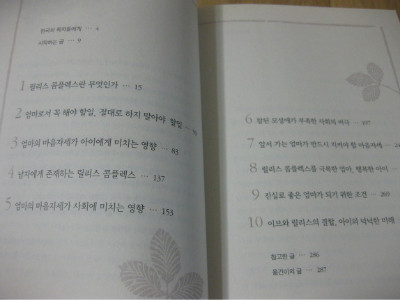 한국의 독자들에게 … 4
시작하는 글 … 9
1 릴리스 콤플렉스란 무엇인가 … 15
2 엄마로서 꼭 해야 할일, 절대로 하지 말아야 할일
3 엄마의 마음자세가 아이에게 미치는 영향 … 85
4 남자에게 존재하는 릴리스 콤플렉스 … 137
5 엄마의 마음자세가 사회에 미치는 영향 … 153
6 참된 모성애가 부족한 사회의 비극 … 187
7 앞서 가는 엄마가 반드시 가져야 할 마음자세
8 릴리스 콤플렉스를 극복한 엄마, 행복한 아이
9 진실로 좋은 엄마가 되기 위한 조건
10 이브와 릴리스의 결합, 아이의 넉넉한 미래
참고한 글 … 286
옮긴이의 글 … 287